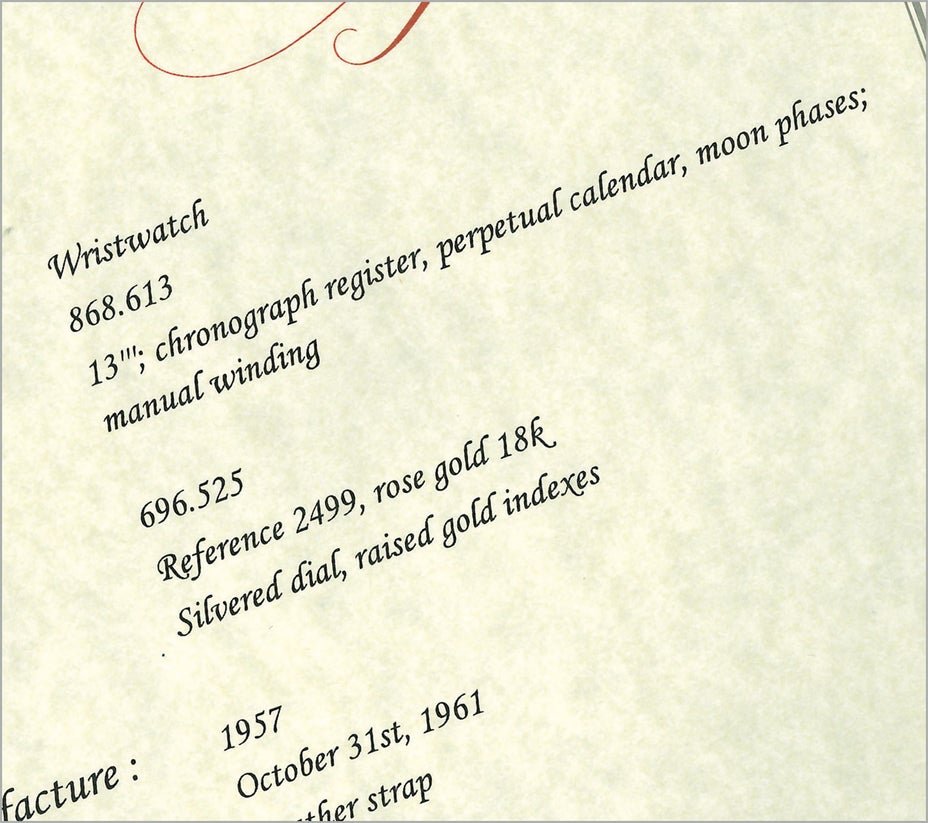 Wristwatch
868.613
13'''; chronograph register, perpetual calendar, moon phases;
manual winding
696.525
Reference 2499, rose gold 18k
Silvered dial, raised gold indexes
1957
October 31st, 1961
strap